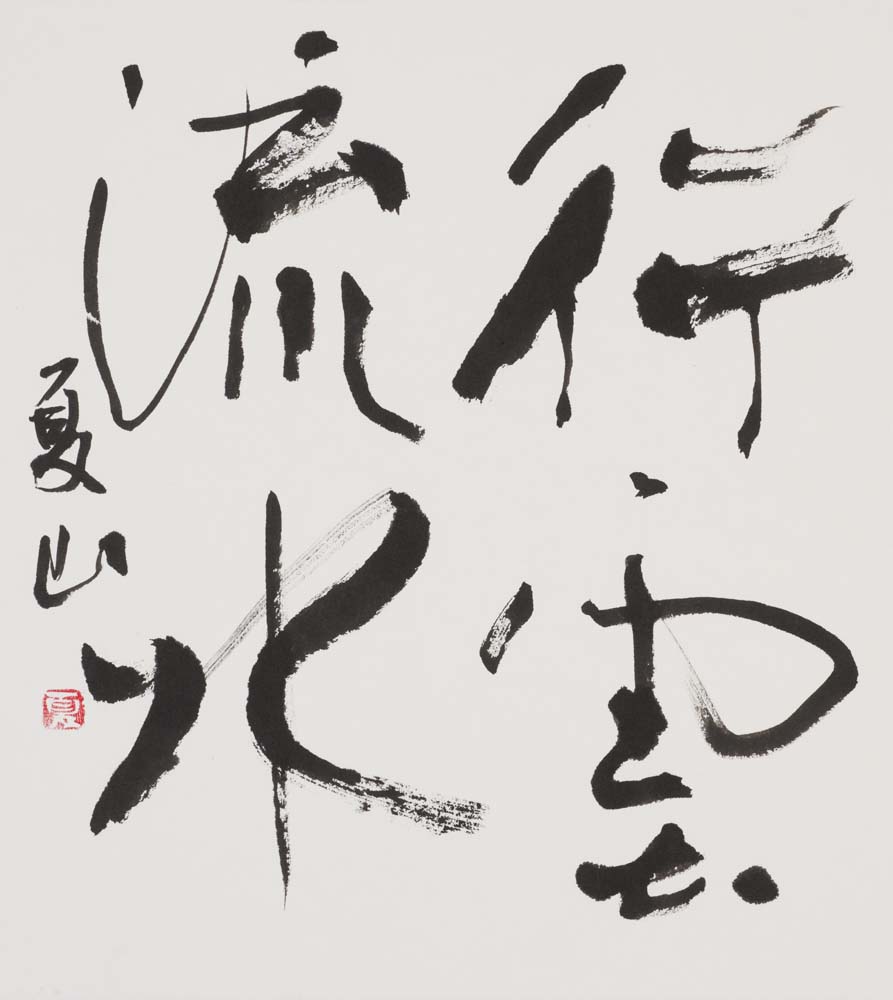 行雲
流水
夏山
夏